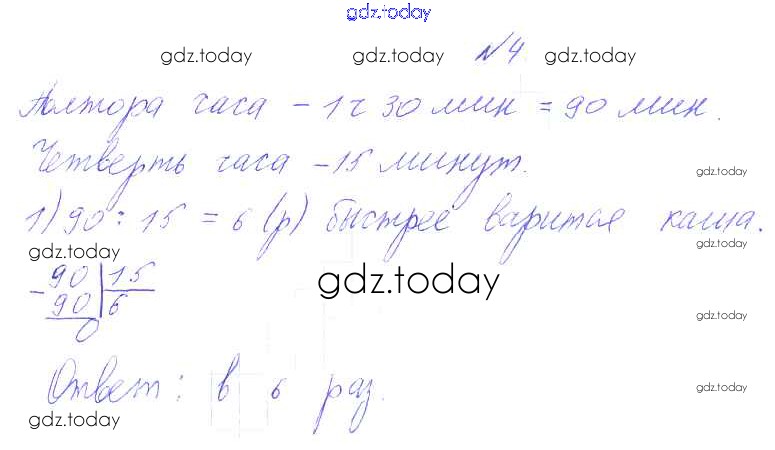 gdz.today
gdz.today gdz.today №4 gdz.today
Полтора часа – 1 ч 30 мин = 90 мин.
Четверть часа – 15 минут.
gdz.today
1) 90 : 15 = 6 (р) быстрее варится каша.
gdz.today gdz.today
– 90 | 15
90 | 6
0
gdz.today
gdz.today
Ответ: в 6 раз.
gdz.today
gdz.today